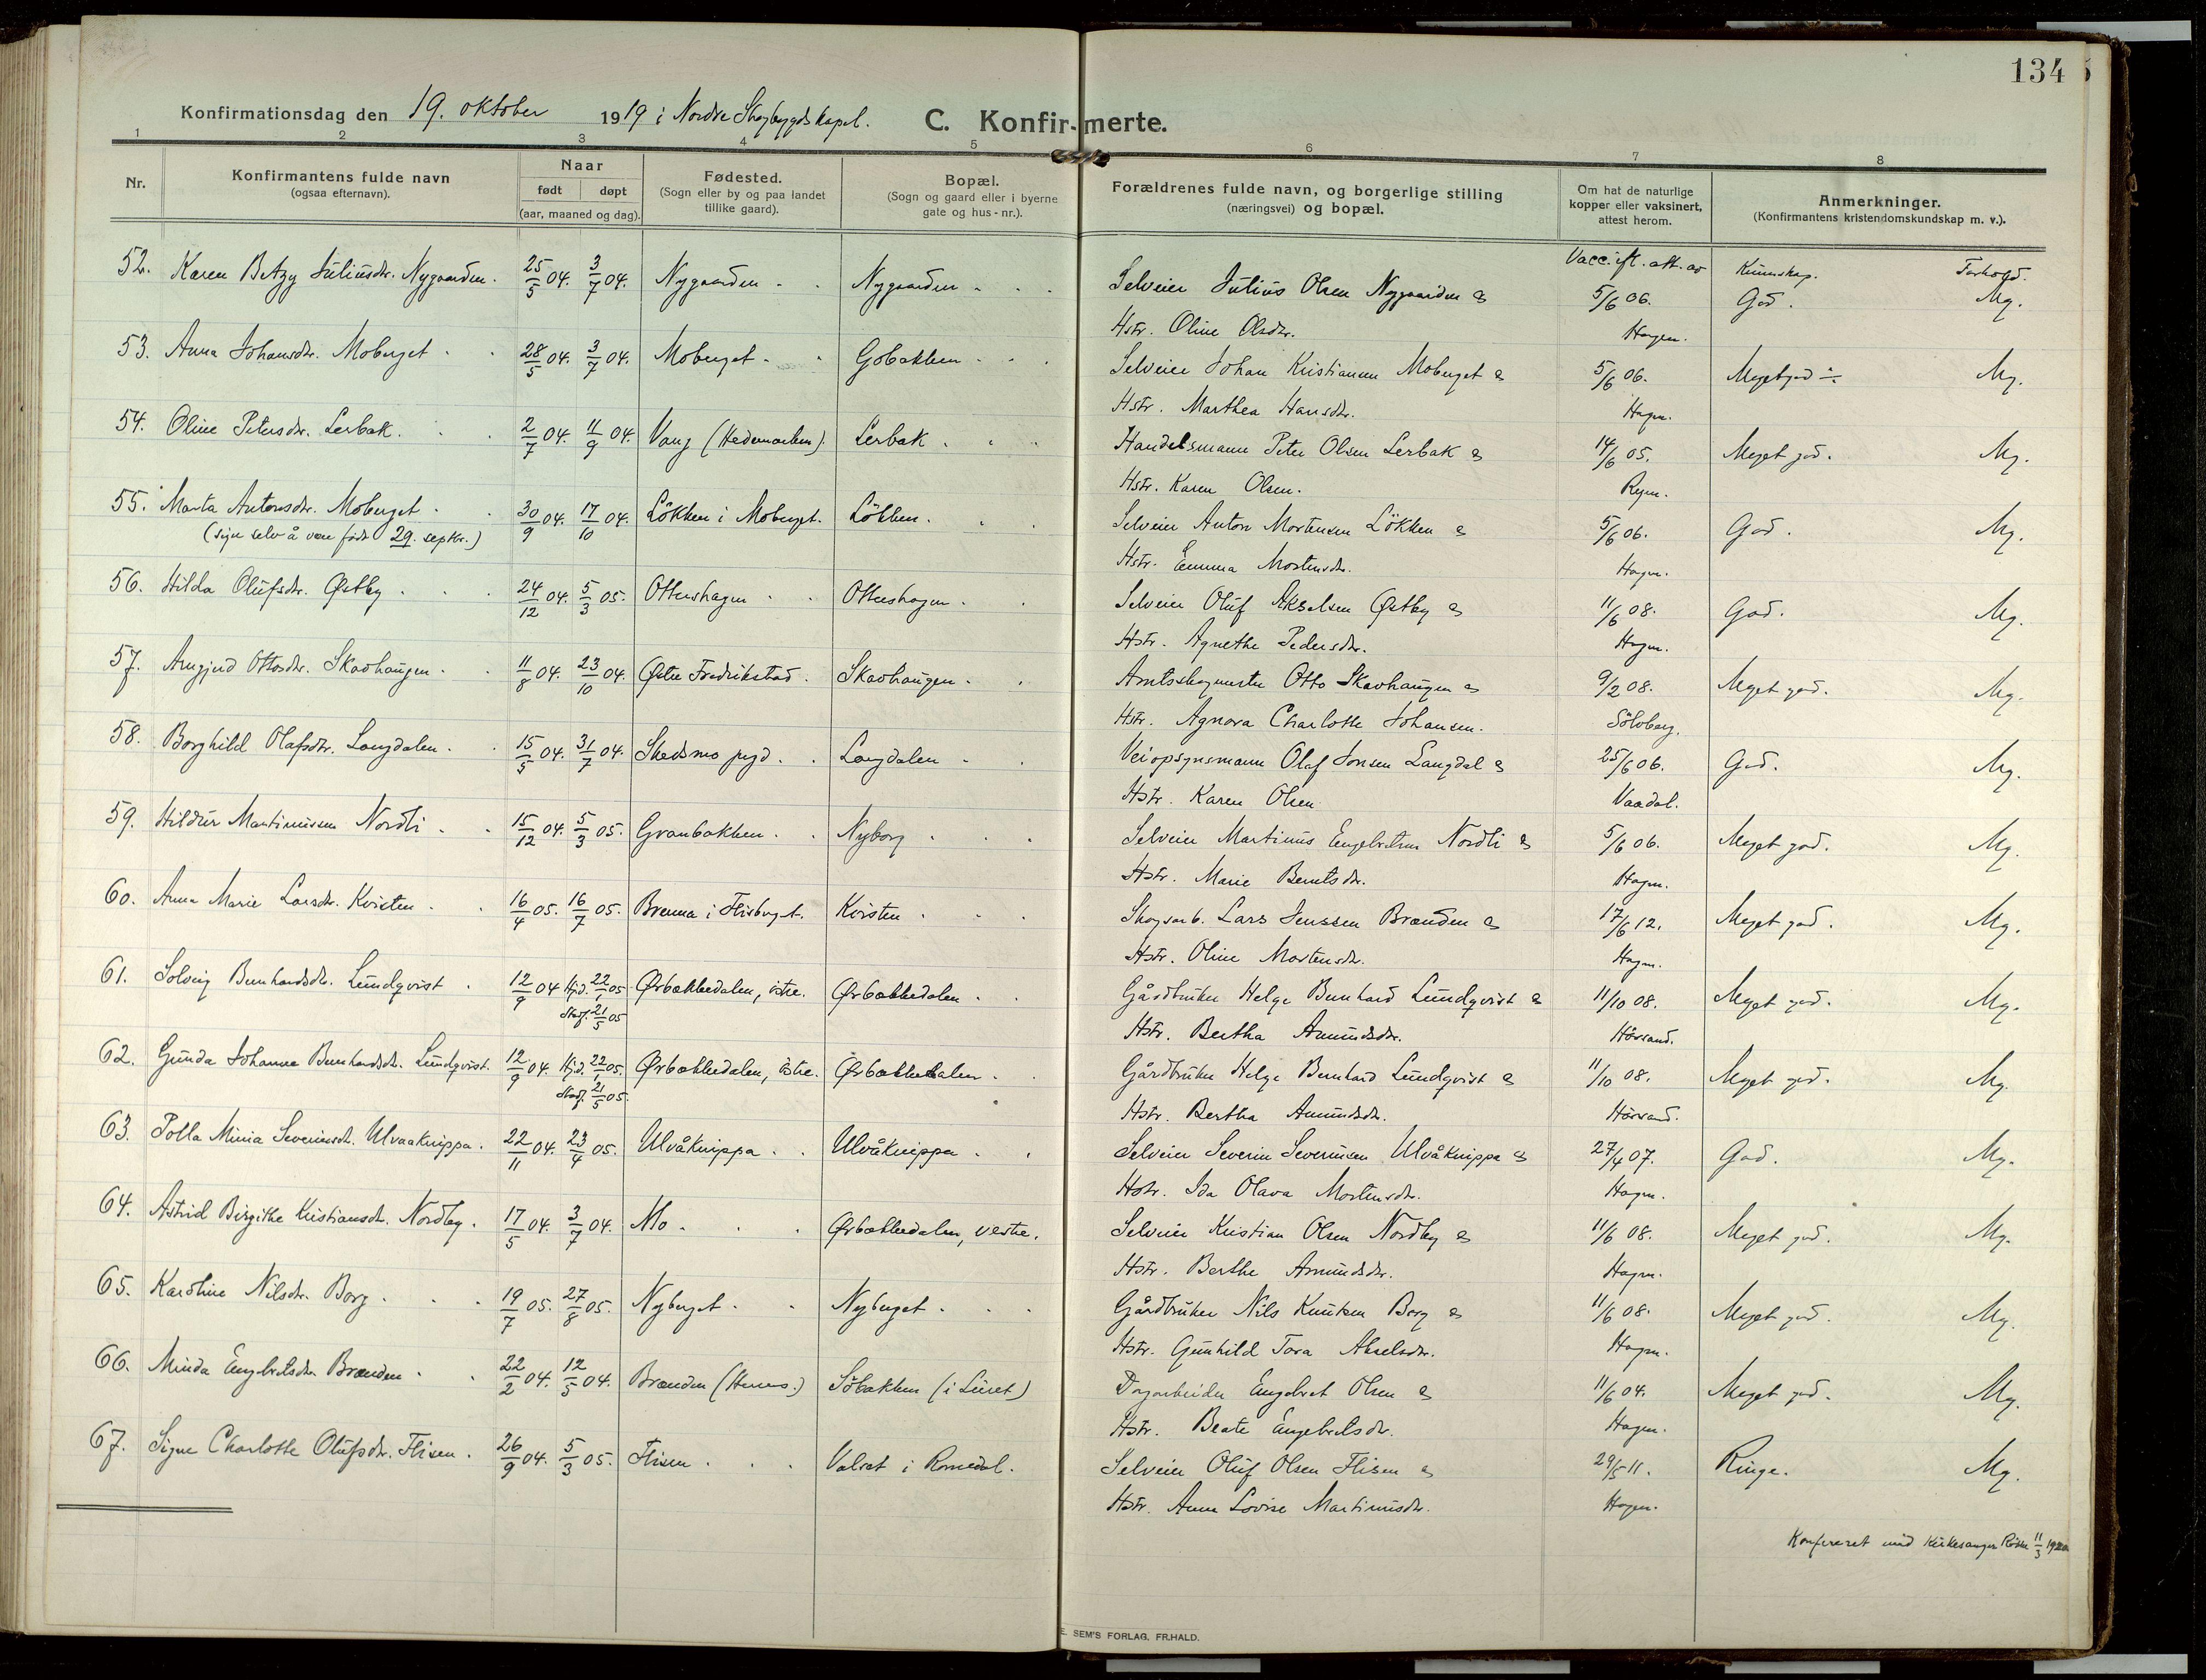 134
Konfirmationsdag den 19. oktober 1919 i Nordre Skogbygds kapel. C. Konfirmerte.
1 2 3 4 5 6 7 8
Nr. Konfirmantens fulde navn (ogsaa efternavn). Naar født døpt (aar, maaned og dag). Fødested. (Sogn eller by og paa landet tillike gaard). Bopæl. (Sogn og gaard eller i byerne gate og hus-nr.). Forældrenes fulde navn, og borgerlige stilling (næringsvei) og bopæl. Om hat de naturlige kopper eller vaksinert, attest herom. Anmerkninger. (Konfirmantens kristendomskundskap m. v.).
Vacc. ifl. att. av Kunnskap. Forhold.
52. Karen Betzy Juliusdtr. Nygaarden. 25/5 04. 3/7 04. Nygaarden Nygaarden Selveier Julius Olsen Nygaarden & 5/6 06. God. Mg.
Hstr. Oline Olsdtr. Hagen.
53. Anna Johansdtr. Moberget 28/5 04. 3/7 04. Moberget Gobakken Selveier Johan Kristiansen Moberget & 5/6 06. Meget god ÷ Mg.
Hstr. Marthea Hansdtr. Hagen.
54. Oline Petersdtr. Lerbak. 2/7 04. 11/9 04. Vang (Hedemarken). Lerbak. Handelsmann Peter Olsen Lerbak & 14/6 05. Meget god. Mg.
Hstr. Karen Olsen.
55. Marta Antonsdtr. Moberget 30/9 04. 17/10 04. Løkken i Moberget. Løkken. Selveier Anton Mortensen Løkken & 5/6 06. God. Mg.
(sier selv å være født 29. septbr.) Hstr. Emma Mortensdtr. Hagen.
56. Hilda Olufsdtr. Østby 24/12 04. 5/3 05. Ottershagen Ottershagen Selveier Oluf Akselsen Østby & 11/6 08. God. Mg.
Hstr. Agnethe Pedersdtr. Hagen.
57. Arngjerd Ottosdtr. Skavhaugen 11/8 04. 23/10 04. Østre Fredrikstad. Skavhaugen Amtsskogmester Otto Skavhaugen & 9/2 08. Meget god. Mg.
Hstr. Agnora Charlotte Johansen. Sölvberg.
58. Borghild Olafsdtr. Langdalen 15/5 04. 31/7 04. Skedsmo prgd. Langdalen Veiopsynsmann Olaf Jonsen Langdal & 25/6 06. God. Mg.
Hstr. Karen Olsen Vaadal.
59. Hildur Martinussen Nordli 15/12 04. 5/3 05. Granbakken Nyborg Selveier Martinus Engebretsen Nordli & 5/6 06. Meget god. Mg.
Hstr. Marie Berntsdtr. Hagen.
60. Anna Marie Larsdtr. Kvisten 16/4 05. 16/7 05. Brenna i Flisberget. Kvisten Skogsarb. Lars Jenssen Brænden & 17/6 12. Meget god. Mg.
Hstr. Oline Mortensdtr. Hagen.
61. Solveig Bernhardsdtr. Lundqvist 12/9 04 Hjd. 22/1 05 Stadf. 21/5 05 Ørbækkedalen, østre. Ørbækkedalen Gårdbruker Helge Bernhard Lundqvist & 11/10 08. Meget god. Mg.
Hstr. Bertha Amundsdtr. Hårsand.
62. Gunda Johanne Bernhardsdtr. Lundqvist. 12/9 04. Hjd. 22/1 05. Stadf. 21/5 05. Ørbækkedalen, østre. Ørbækkedalen Gårdbruker Helge Bernhard Lundqvist & 11/10 08. Meget god. Mg.
Hstr. Bertha Amundsdtr. Hårsand.
63. Polla Minia Severinsdtr. Ulvaaknippa. 22/11 04. 23/4 05. Ulvåknippa Ulvåknippa Selveier Severin Severinsen Ulvåknippa & 27/4 07. God. Mg.
Hstr. Ida Olava Mortensdtr. Hagen.
64. Astrid Birgithe Kristiansdtr. Nordby. 17/5 04. 3/7 04. Mo Ørbækkedalen, vestre. Selveier Kristian Olsen Nordby & 11/6 08. Meget god. Mg.
Hstr. Berthe Amundsdtr. Hagen.
65. Karoline Nilsdtr. Borg 19/7 05. 27/8 05. Nyberget Nyberget Gårdbruker Nils Knutsen Borg & 11/6 08. Meget god. Mg.
Hstr. Gunhild Tora Akselsdtr. Hagen.
66. Minda Engebretsdtr. Brænden 22/2 04. 12/5 04. Brænden (Hernes.) Søbakken (i Luret) Dagarbeider Engebret Olsen & 11/6 04. Meget god. Mg.
Hstr. Beate Engebretsdtr. Hagen.
67. Signe Charlotte Olufsdtr. Flisen. 26/9 04. 5/3 05. Flisen Valset i Romedal. Selveier Oluf Olsen Flisen & 29/5 11. Ringe. Mg.
Hstr. Anna Lovise Martinusdtr. Hagen.
Konfereret med Kirkesanger 11/3 1920
E. SEM'S FORLAG, FR.HALD.